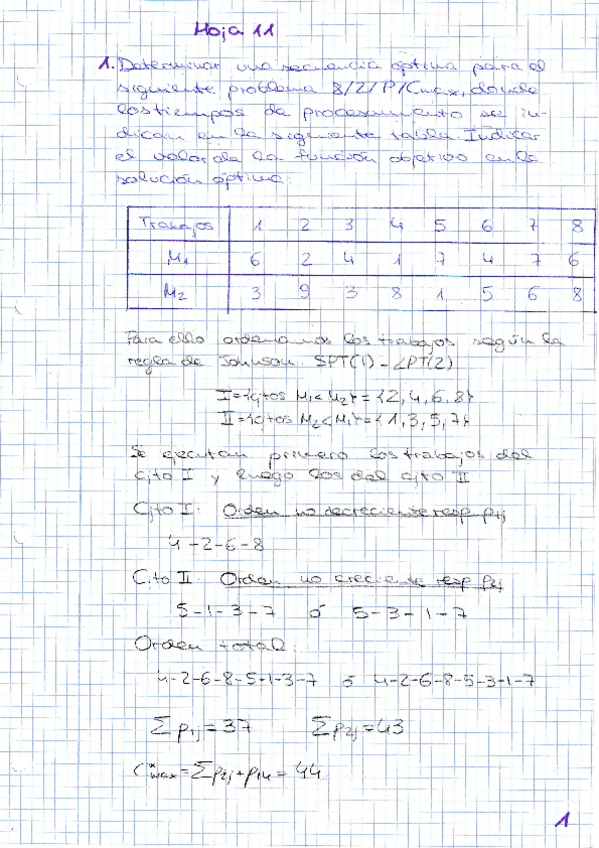 Hoja 11
1. Determinar una secuencia óptima para el
siguiente problema 8/2/P/Cmax, donde
los tiempos de procesamiento se in-
dican en la siguiente tabla. Indicar
el valor de la función objetivo en la
solución óptima:
Trabajos 1 2 3 4 5 6 7 8
M1 6 2 4 1 7 4 7 6
M2 3 9 3 8 1 5 6 8
Para ello ordenamos los trabajos según la
regla de Johnson. SPT(1)-LPT(2)
I={cjtos M1<M2}={2,4,6,8}
II={cjtos M2<M1}={1,3,5,7}
Se ejecutan primero los trabajos del
cjto I y luego los del cjto II
Cjto I: Orden no decreciente resp p1j
4-2-6-8
Cjto II: Orden no creciente resp p2j
5-1-3-7 ó 5-3-1-7
Orden total:
4-2-6-8-5-1-3-7 ó 4-2-6-8-5-3-1-7
∑p1j=37 ∑p2j=43
C*max=∑p2j+p14=44
1